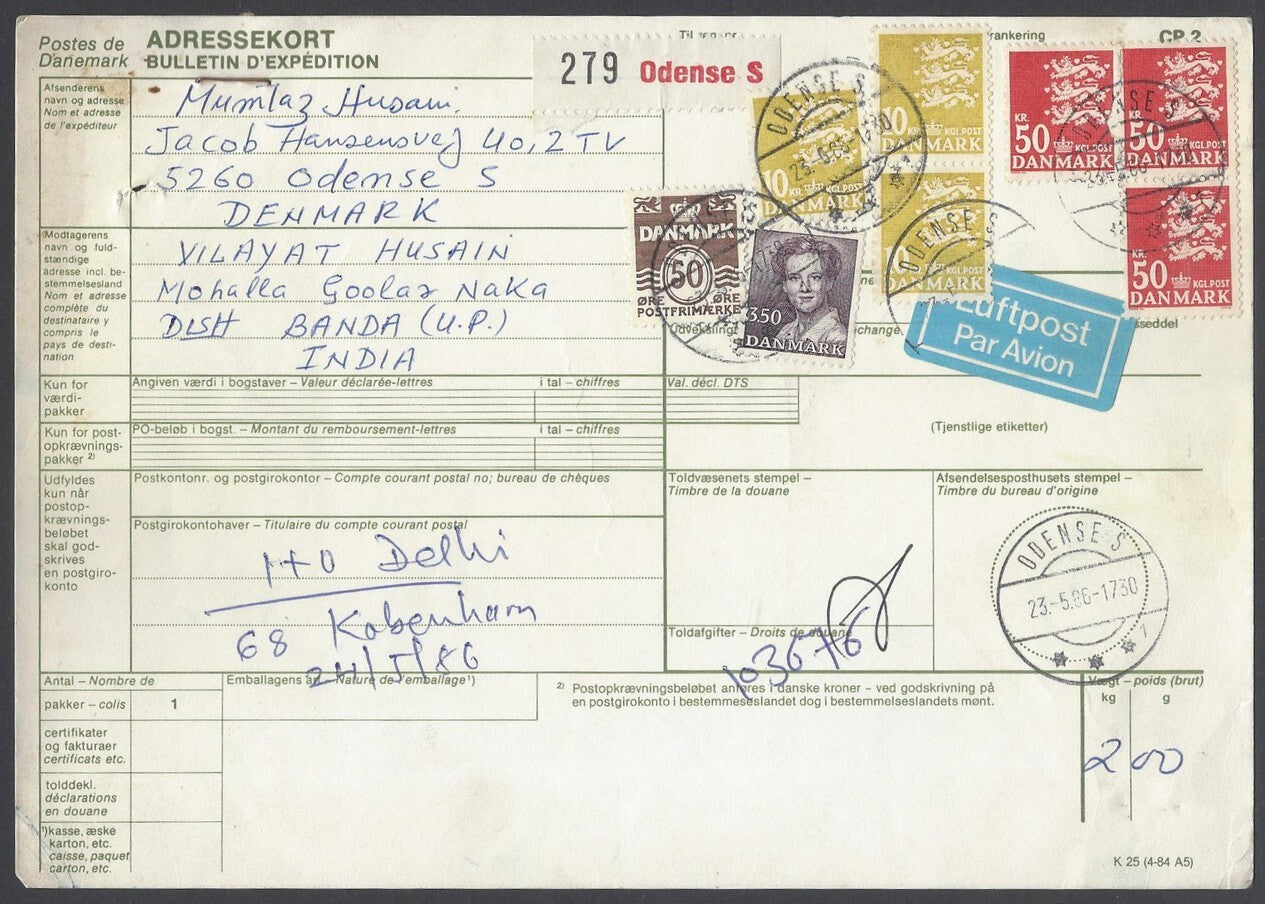 Postes de Danemark
ADRESSEKORT
BULLETIN D'EXPÉDITION
279 Odense S
CP 2
Afsenderens
navn og adresse
Nom et adresse
de l'expéditeur
Mumtaz Husain.
Jacob Hansensvej 40, 2 TV
5260 Odense S
DENMARK
Modtagerens
navn og fuld-
stændige
adresse incl. be-
stemmelsesland
Nom et adresse
complète du
destinataire y
compris le
pays de desti-
nation
VILAYAT HUSAIN
Mohalla Goolar Naka
DISH BANDA (U.P.)
INDIA
DANMARK
50
ØRE ØRE
POSTFRIMÆRKE
350
DANMARK
10 KR. KGL POST
DANMARK
10 KGL.POST
10 KGL.POST
KR. 50 KGL.POST
DANMARK
KR. 50 KGL.POST
DANMARK
KR. 50 KGL.POST
DANMARK
ODENSE S
ODENSE S
ODENSE S
Luftpost
Par Avion
Kun for
værdi-
pakker
Angiven værdi i bogstaver – Valeur déclarée-lettres
i tal – chiffres
Val. décl. DTS
Kun for post-
opkrævnings-
pakker 2)
PO-beløb i bogst. – Montant du remboursement-lettres
i tal – chiffres
(Tjenstlige etiketter)
Udfyldes
kun når
postop-
krævnings-
beløbet
skal god-
skrives
en postgiro-
konto
Postkontonr. og postgirokontor – Compte courant postal no; bureau de chèques
Postgirokontohaver – Titulaire du compte courant postal
1+0 Delhi
68 København
24/5/86
Toldvæsenets stempel –
Timbre de la douane
Toldafgifter – Droits de douane
103676
Afsendelsesposthusets stempel –
Timbre du bureau d'origine
ODENSE S
23.-5.86-1730
Antal – Nombre de
pakker – colis 1
Emballagens art – Nature de l'emballage¹)
2) Postopkrævningsbeløbet anføres i danske kroner - ved godskrivning på
en postgirokonto i bestemmeseslandet dog i bestemmelseslandets mønt.
Vægt – poids (brut)
kg g
2 00
certifikater
og fakturaer
certificats etc.
tolddekl.
déclarations
en douane
¹) kasse, æske
karton, etc.
caisse, paquet
carton, etc.
K 25 (4-84 A5)